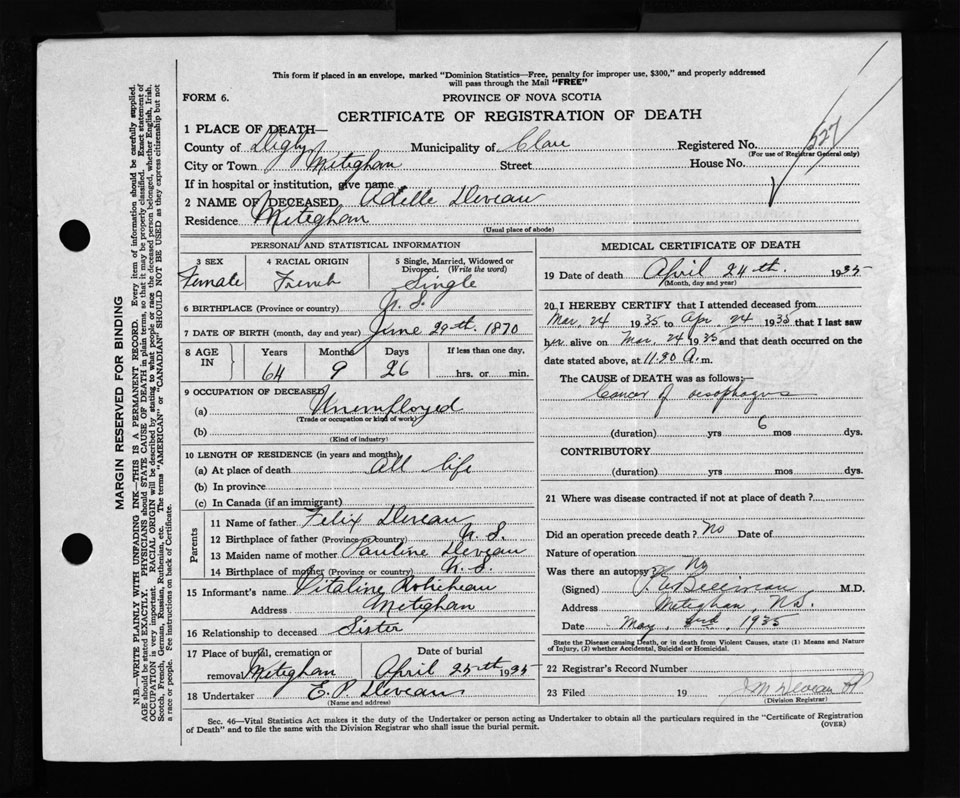 This form if placed in an envelope, marked "Dominion Statistics—Free, penalty for improper use, $300," and properly addressed
will pass through the Mail "FREE"
FORM 6.
PROVINCE OF NOVA SCOTIA
CERTIFICATE OF REGISTRATION OF DEATH
1 PLACE OF DEATH—
County of Digby Municipality of Clare Registered No. 527
(For use of Registrar General only)
City or Town Meteghan Street House No.
If in hospital or institution, give name
2 NAME OF DECEASED Adelle Deveau
Residence Meteghan
(Usual place of abode)
PERSONAL AND STATISTICAL INFORMATION
3 SEX 4 RACIAL ORIGIN 5 Single, Married, Widowed or
Divorced. (Write the word)
Female French Single
6 BIRTHPLACE (Province or country) N. S.
7 DATE OF BIRTH (month, day and year) June 29th. 1870
8 AGE IN Years Months Days If less than one day,
64 9 26 hrs. or min.
9 OCCUPATION OF DECEASED
(a) Unemployed
(Trade or occupation or kind of work)
(b)
(Kind of industry)
10 LENGTH OF RESIDENCE (in years and months)
(a) At place of death All life
(b) In province
(c) In Canada (if an immigrant)
Parents
11 Name of father Felix Deveau
12 Birthplace of father (Province or country) N. S.
13 Maiden name of mother Pauline Deveau
14 Birthplace of mother (Province or country) N. S.
15 Informant's name Vitaline Robicheau
Address Meteghan
16 Relationship to deceased Sister
17 Place of burial, cremation or Date of burial
removal Meteghan April 25th 1935
18 Undertaker E. P. Deveau
(Name and address)
MEDICAL CERTIFICATE OF DEATH
19 Date of death April 24th. 1935
(Month, day and year)
20 I HEREBY CERTIFY that I attended deceased from
Mar, 24 1935 to Apr, 24 1935 that I last saw
her alive on Mar, 24 1935 and that death occurred on the
date stated above, at 11.30 A.m.
The CAUSE OF DEATH was as follows:—
Cancer of oesophagus
(duration) yrs 6 mos dys.
CONTRIBUTORY
(duration) yrs mos dys.
21 Where was disease contracted if not at place of death ?
Did an operation precede death ? No Date of
Nature of operation
Was there an autopsy? No
(Signed) M.D.
Address Meteghan, N.S.
Date May, 1935
State the Disease causing Death, or in death from Violent Causes, state (1) Means and Nature
of Injury, (2) whether Accidental, Suicidal or Homicidal.
22 Registrar's Record Number
23 Filed 19 J M Deveau
(Division Registrar)
Sec. 46—Vital Statistics Act makes it the duty of the Undertaker or person acting as Undertaker to obtain all the particulars required in the "Certificate of Registration
of Death" and to file the same with the Division Registrar who shall issue the burial permit. (OVER)
MARGIN RESERVED FOR BINDING
N.B.—WRITE PLAINLY WITH UNFADING INK—THIS IS A PERMANENT RECORD. Every item of information should be carefully supplied.
AGE should be stated EXACTLY. PHYSICIANS should STATE CAUSE OF DEATH in plain terms, so that it may be properly classified. Exact statement of
OCCUPATION is very important. RACIAL ORIGIN will be described by stating to what people or race the deceased person belonged, whether English, Irish,
Scotch, French, German, Russian, Ruthenian, etc. The terms "AMERICAN" or "CANADIAN" SHOULD NOT BE USED as they express citizenship but not
a race or people. Fee instructions on back of Certificate.